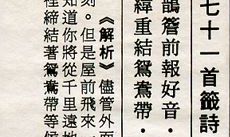 七十一首籤詩
鵲簷前報好音·
緯重結鴛鴦帶·
《解析》儘管外面
刻。但是屋前飛來
知道你將從千里遠
裡締結著鴛鴦帶等